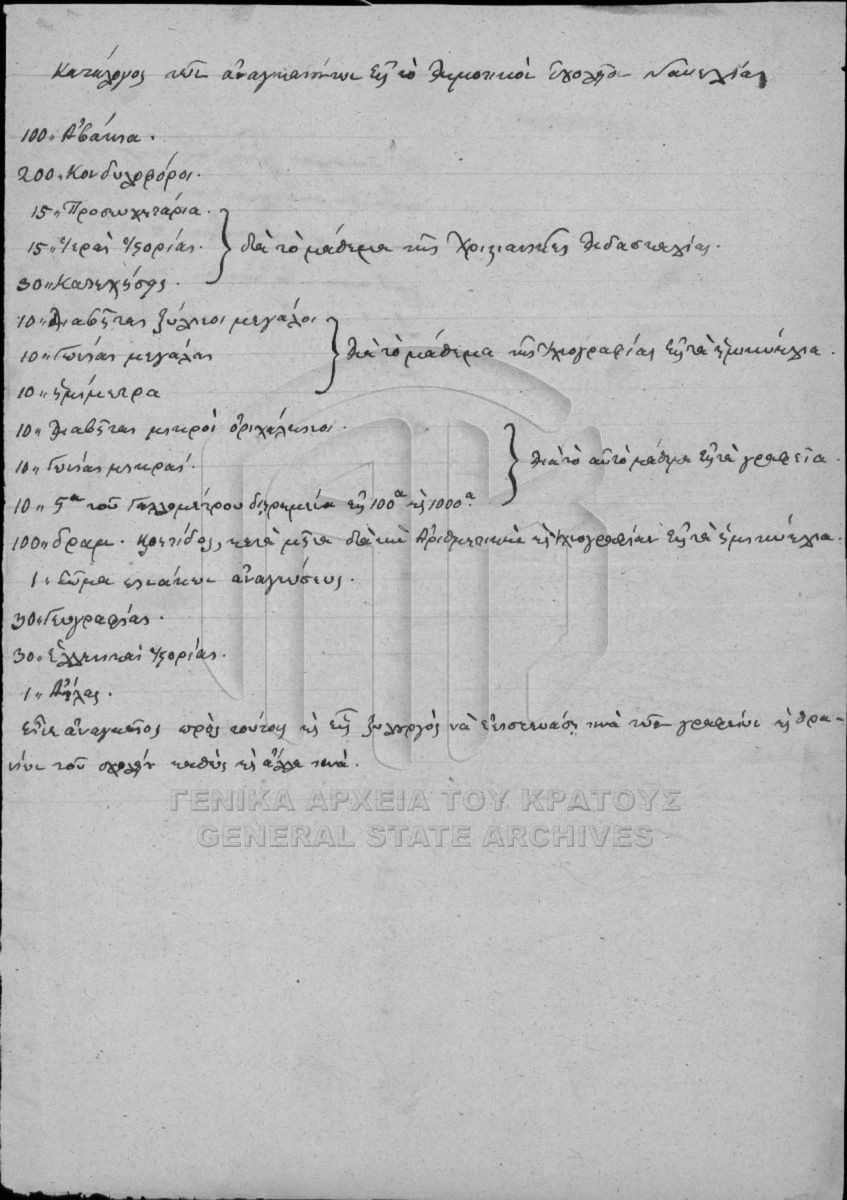 Κατάλογος τῶν ἀναγκαιούντων εἰς τὸ Δημοτικὸν Σχολεῖον Ναυπλίας
100 „ Ἀβάκια.
200 „ Κονδυλοφόροι.
15 „ Προσευχητάρια.
15 „ Ἱερὰς Ἱστορίας. } διὰ τὸ μάθημα τῆς Χριστιανικῆς Διδασκαλίας.
30 „ Κατηχήσεις.
10 „ Διαβῆται ξύλινοι μεγάλοι
10 „ Γωνίας μεγάλας } διὰ τὸ μάθημα τῆς Ἰχνογραφίας εἰς τὰ ἡμικύκλια.
10 „ ἡμίμετρα
10 „ Διαβῆται μικροὶ ὀριχάλκινοι.
10 „ Γωνίας μικράς. } διὰ τὸ αὐτὸ μάθημα εἰς τὰ γραφεῖα.
10 „ 5α τοῦ Γαλλομέτρου διῃρημένα εἰς 100α κ 1000α.
100 „ δραμ. κρητίδος, κατὰ μῆνα διὰ τὴν Ἀριθμητικὴν κ Ἰχνογραφίαν εἰς τὰ ἡμικύκλια.
1 „ Σῶμα πινάκων ἀναγνώσεως.
30 „ Γεωγραφίας.
30 „ Ἑλληνικὰς Ἱστορίας.
1 „ Ἄτλας.
Εἶναι ἀναγκαῖος πρὸς τούτοις κ εἷς ξυλουργὸς νὰ ἐπισκευάσῃ τινὰ τῶν γραφείων κ θρα-
νίων τοῦ σχολείου καθὼς κ ἄλλα τινά.
ΓΕΝΙΚΑ ΑΡΧΕΙΑ ΤΟΥ ΚΡΑΤΟΥΣ
GENERAL STATE ARCHIVES